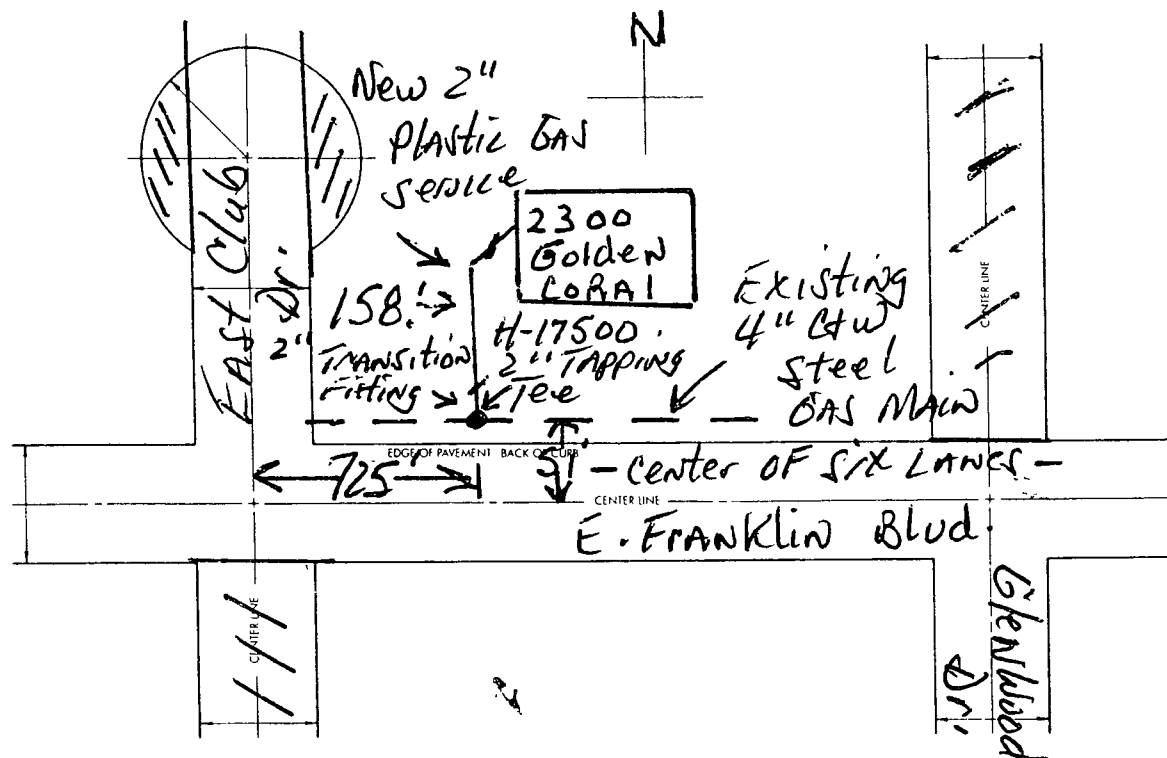 N
New 2"
Plastic GAS
service
East Club
Dr.
2300
Golden
CORAl
158'
2"
TRANSition
Fitting
H-17500
2" TAPPing
Tee
Existing
4" C+W
Steel
GAS MAIN
CENTER LINE
EDGE OF PAVEMENT BACK OF CURB
725'
51'
-center OF Six LANes-
CENTER LINE
E. FRANKlin Blvd.
CENTER LINE
GlenWood
Dr.